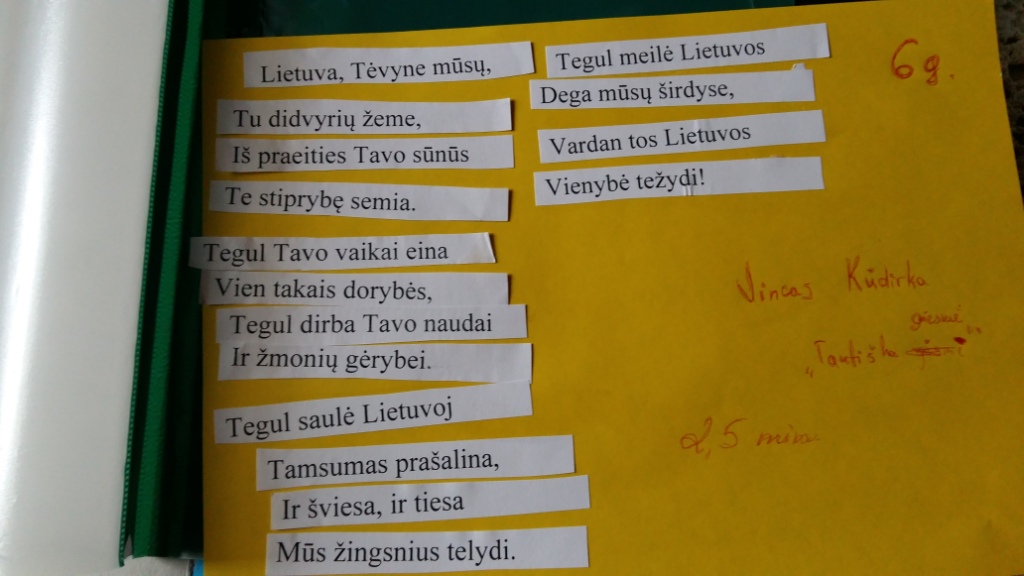 Lietuva, Tėvyne mūsų,
Tu didvyrių žeme,
Iš praeities Tavo sūnūs
Te stiprybę semia.
Tegul Tavo vaikai eina
Vien takais dorybės,
Tegul dirba Tavo naudai
Ir žmonių gėrybei.
Tegul saulė Lietuvoj
Tamsumas prašalina,
Ir šviesa, ir tiesa
Mūs žingsnius telydi.
Tegul meilė Lietuvos
Dega mūsų širdyse,
Vardan tos Lietuvos
Vienybė težydi!
6 g.
Vincas Kūdirka
giesmė
„Tautiška
2,5 min.